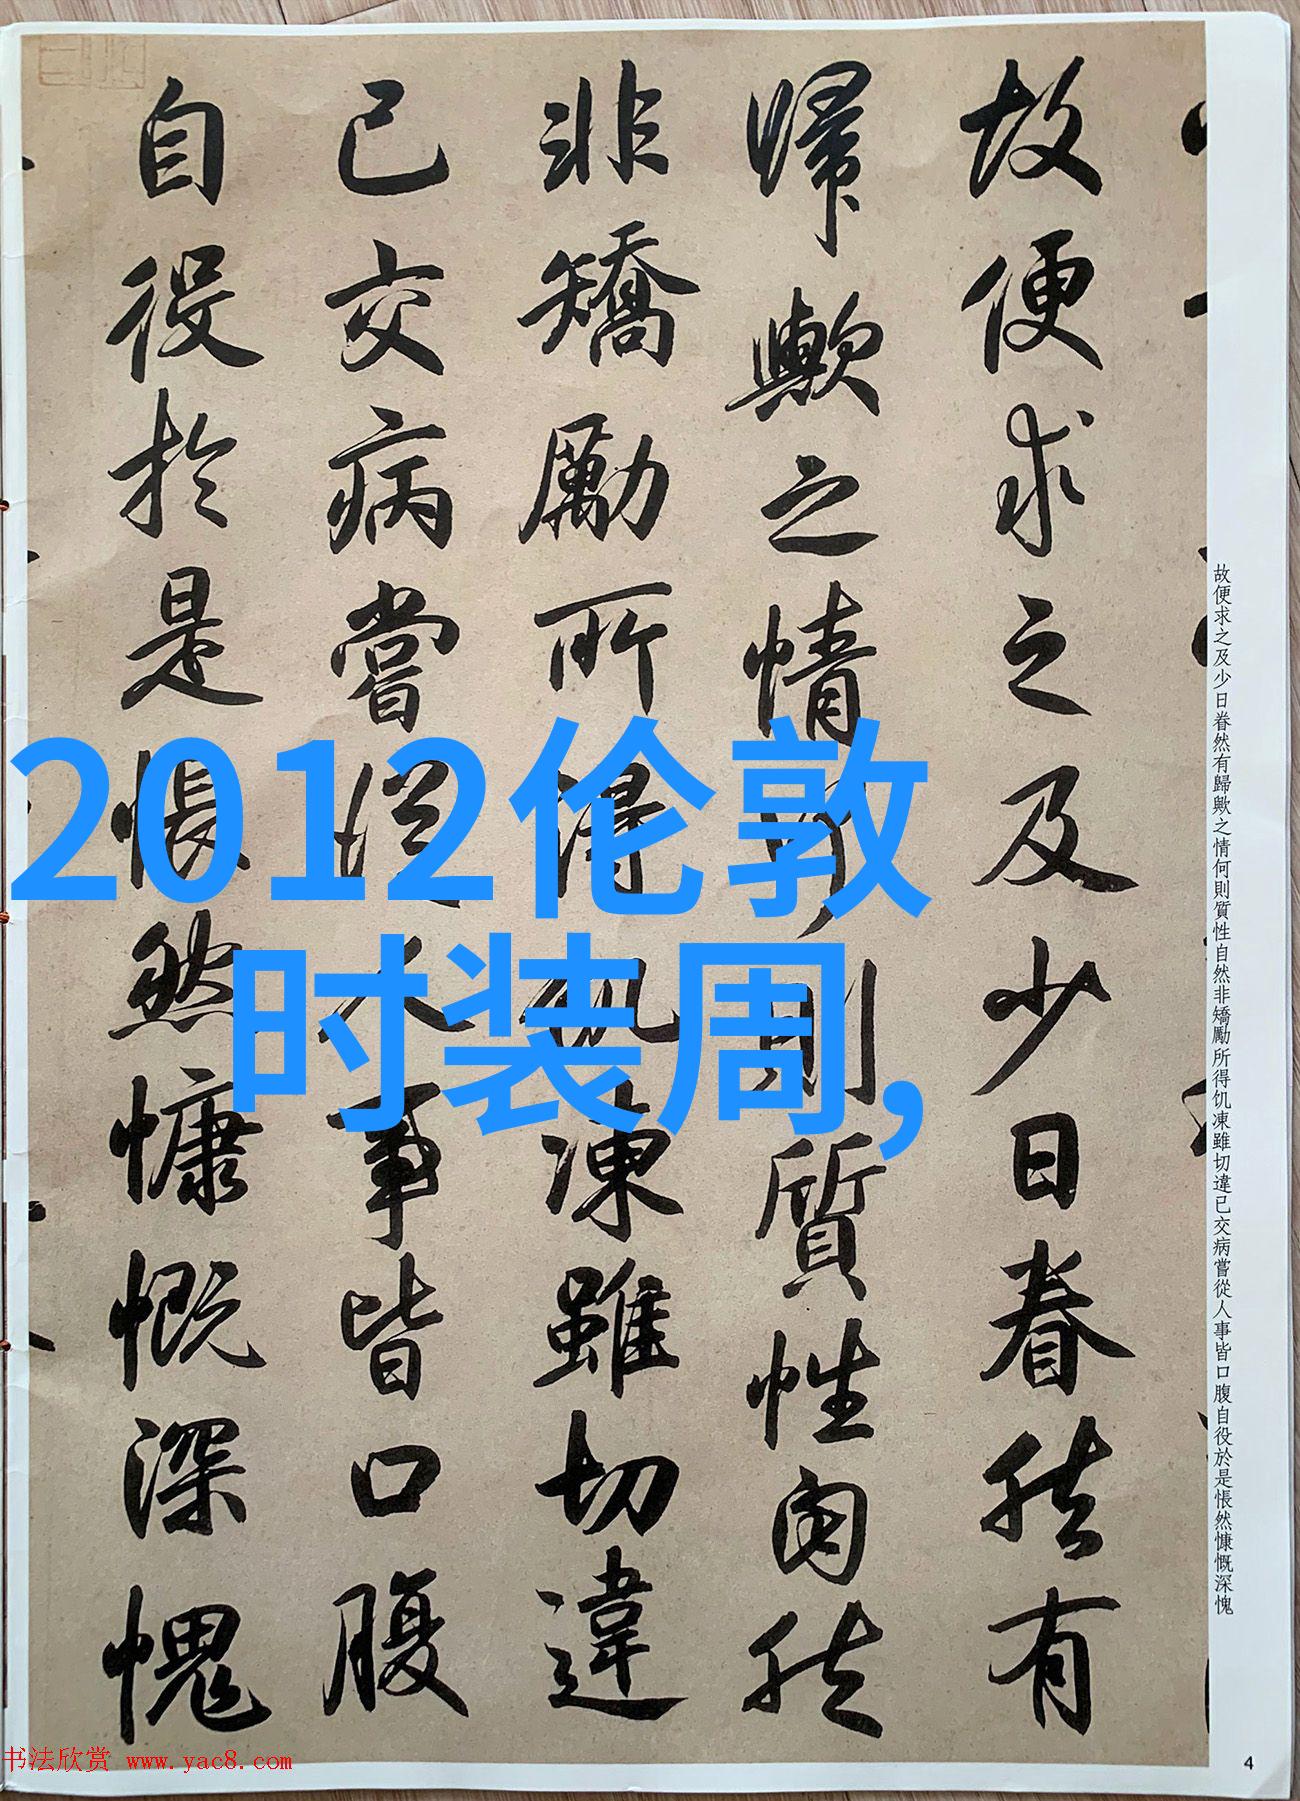 故便求之及少日眷然有
歸歟之情何則質性自然
非矯勵所得飢凍雖切違
已交病嘗從人事皆口腹
自役於是悵然慷慨深愧
故便求之及少日眷然有歸歟之情何則質性自然非矯勵所得饥凍雖切違已交病嘗從人事皆口腹自役於是悵然慷慨深愧
2012伦敦
时装周,
书法欣赏 www.yac8.com
4